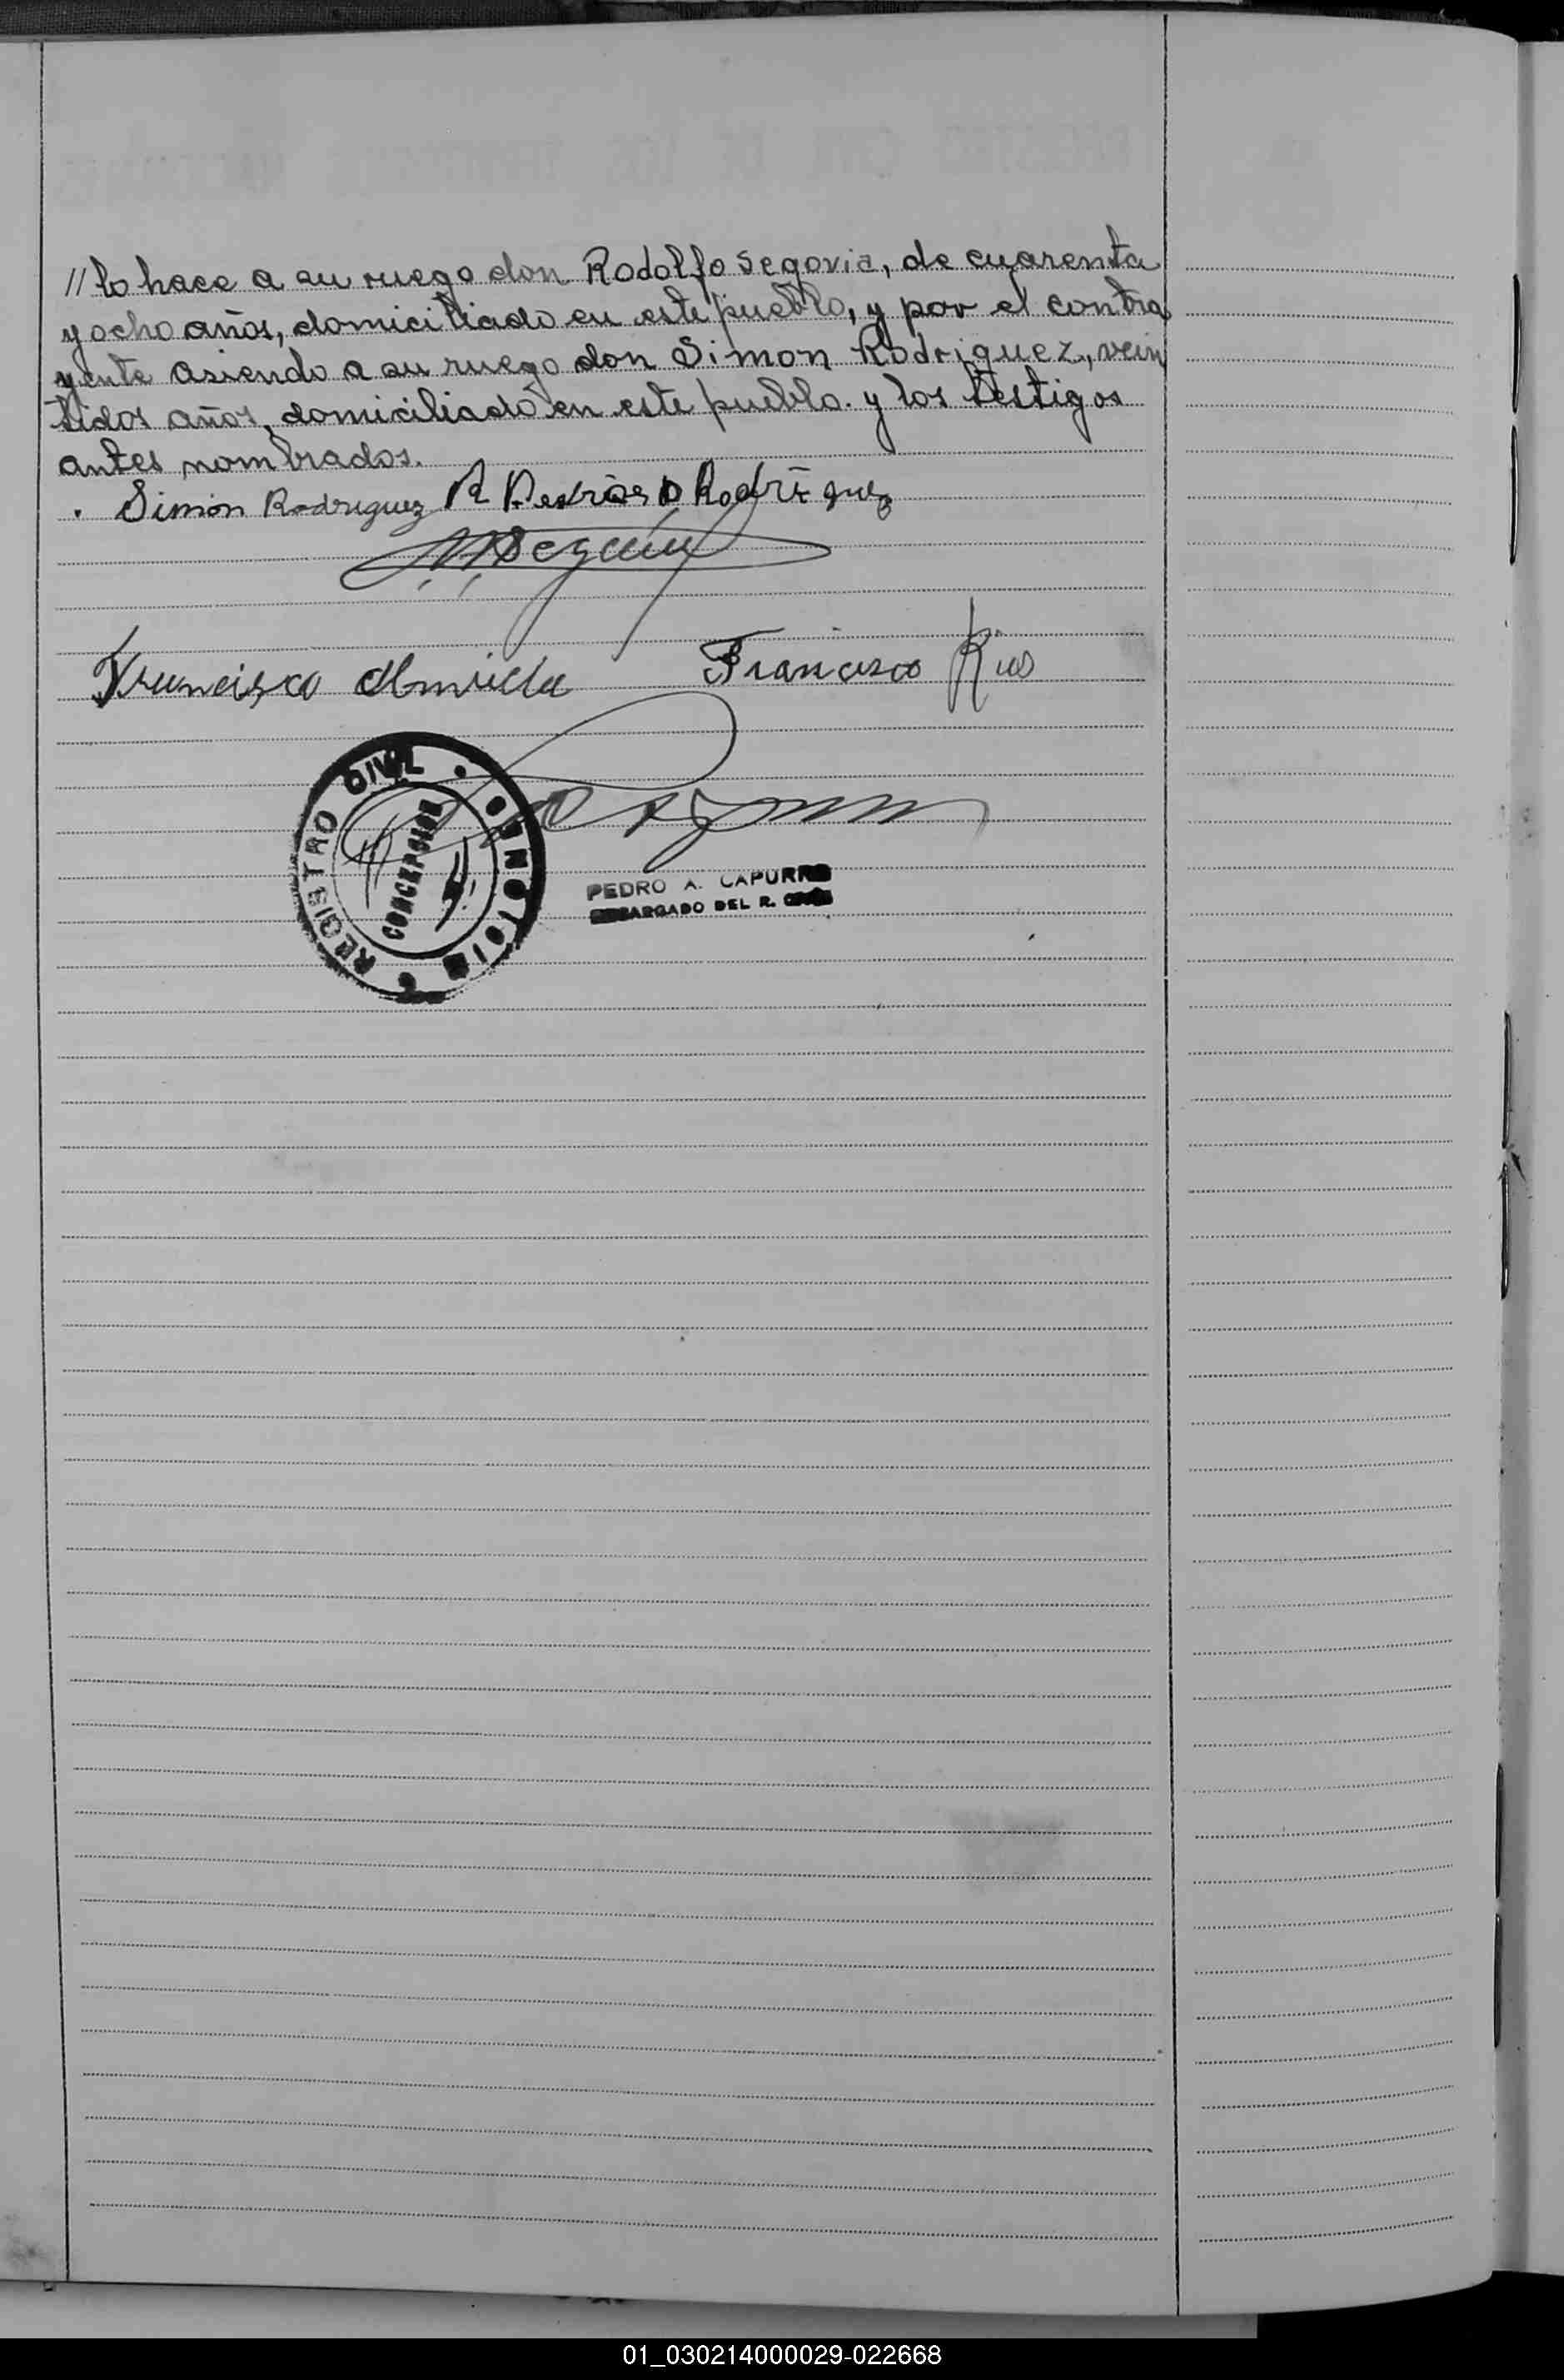 // lo hace a su ruego don Rodolfo Segovia, de cuarenta
y ocho años, domiciliado en este pueblo, y por el contra
yente asiendo a su ruego don Simon Rodriguez, vein
tidos años, domiciliado en este pueblo. y los testigos
antes nombrados.
Simón Rodriguez Rodríguez
Francisco Francisco Rios
REGISTRO CIVIL
CONCEPCION
PEDRO A. CAPURRO
ENCARGADO DEL R. CIVIL
01_030214000029-022668